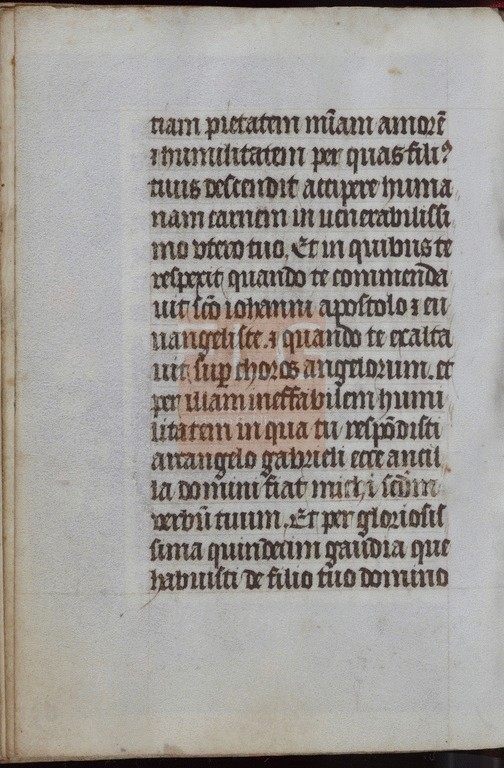 tiam pietatem mīam amorē
⁊ humilitatem per quas filiꝰ
tuus descendit accipere huma
nam carnem in uenerabilissi
mo vtero tuo. Et in quibus te
respexit quando te commenda
uit sc̄o iohanni apostolo ⁊ eu
uangeliste. ⁊ quando te exalta
uit sup̄ choros angelorum. et
per illam ineffabilem humi
litatem in qua tu respōdisti
archangelo gabrieli ecce ancil
la domini fiat michi sc̄dm
verbū tuum. Et per gloriosis
sima quindecim gaudia que
habuisti de filio tuo domino